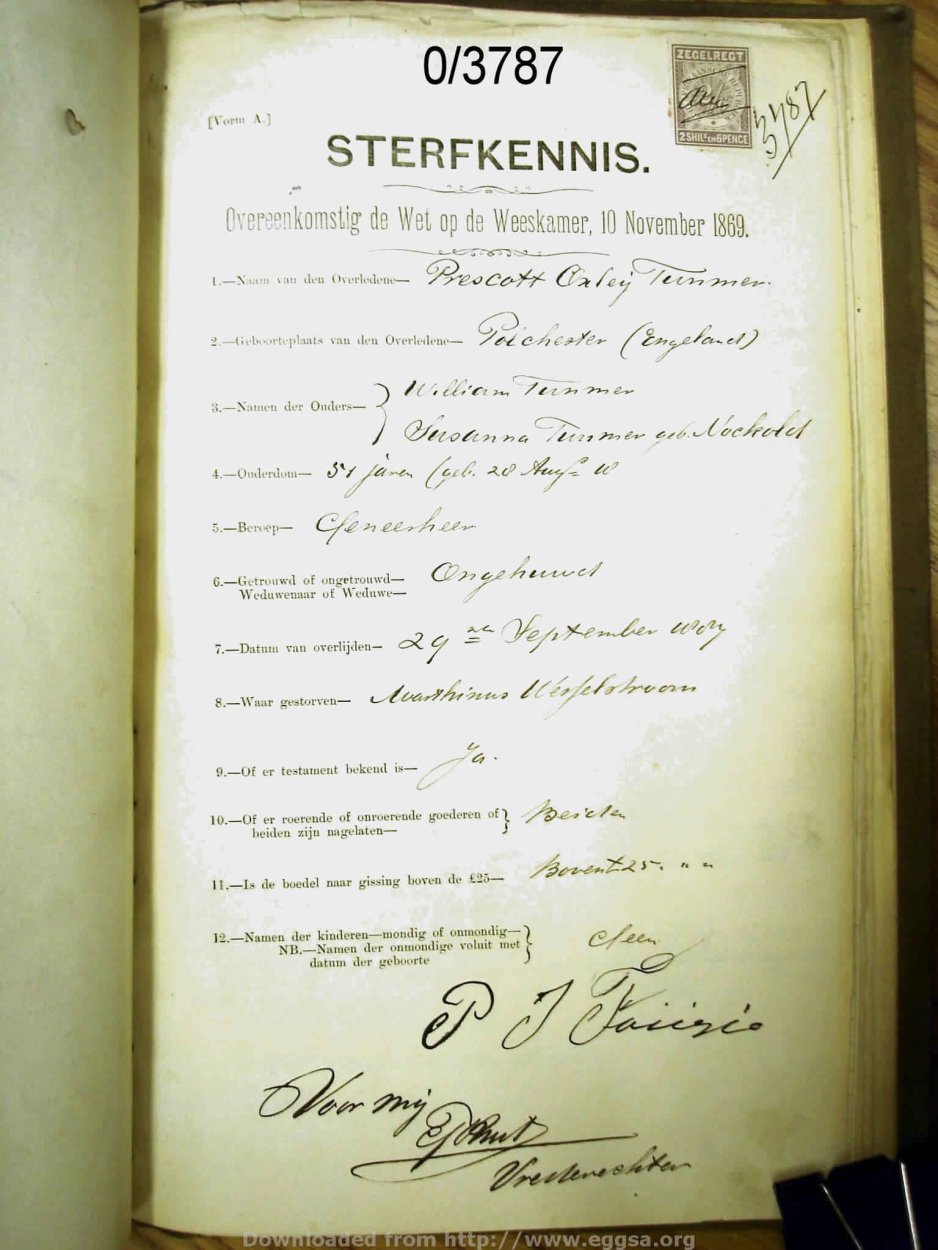 0/3787
ZEGELREGT
2 SHILS EN 6 PENCE
3787
[Vorm A.]
STERFKENNIS.
Overeenkomstig de Wet op de Weeskamer, 10 November 1869.
1.—Naam van den Overledene— Prescott Oxley Tunmer.
2.—Geboorteplaats van den Overledene— Polchester (Engeland)
3.—Namen der Ouders— William Tunmer
Susanna Tunmer geb. Nockold
4.—Ouderdom— 51 jaren (geb. 28 Aug
5.—Beroep— Geneesheer
6.—Getrouwd of ongetrouwd— Ongehuwd
Weduwenaar of Weduwe—
7.—Datum van overlijden— 29 September
8.—Waar gestorven— Marthinus Wesselstroom
9.—Of er testament bekend is— Ja.
10.—Of er roerende of onroerende goederen of Beiden
beiden zijn nagelaten—
11.—Is de boedel naar gissing boven de £25— Boven £25. " "
12.—Namen der kinderen—mondig of onmondig— Geen
NB.—Namen der onmondige voluit met
datum der geboorte
P J
Voor mij
Vrederechter
Downloaded from http://www.eggsa.org